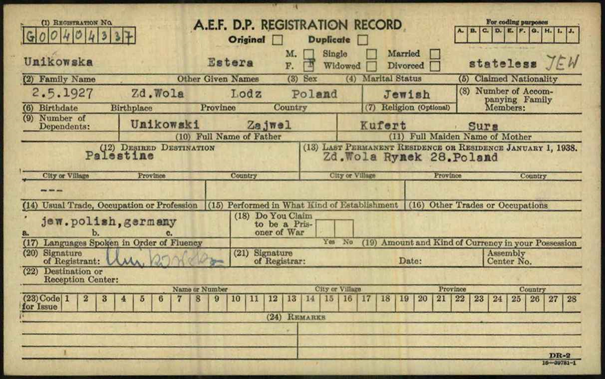 (1) REGISTRATION NO. A.E.F. D.P. REGISTRATION RECORD For coding purposes
G00404337 Original Duplicate A. B. C. D. E. F. G. H. I. J.
M. Single Married
Unikowska Estera F. Widowed Divorced stateless JEW
(2) Family Name Other Given Names (3) Sex (4) Marital Status (5) Claimed Nationality
2.5.1927 Zd.Wola Lodz Poland Jewish (8) Number of Accompanying Family Members:
(6) Birthdate Birthplace Province Country (7) Religion (Optional)
(9) Number of Dependents: Unikowski Zajwel Kufert Sura
(10) Full Name of Father (11) Full Maiden Name of Mother
(12) DESIRED DESTINATION (13) LAST PERMANENT RESIDENCE OR RESIDENCE JANUARY 1, 1938.
Palestine Zd.Wola Rynek 28.Poland
City or Village Province Country City or Village Province Country
---
(14) Usual Trade, Occupation or Profession (15) Performed in What Kind of Establishment (16) Other Trades or Occupations
jew.polish,germany (18) Do You Claim to be a Prisoner of War
a. b. c. Yes No
(17) Languages Spoken in Order of Fluency (19) Amount and Kind of Currency in your Possession
(20) Signature of Registrant: Unikowska (21) Signature of Registrar: Date: Assembly Center No.
(22) Destination or Reception Center:
Name or Number City or Village Province Country
(23) Code for Issue 1 2 3 4 5 6 7 8 9 10 11 12 13 14 15 16 17 18 19 20 21 22 23 24 25 26 27 28
(24) REMARKS
DR-2